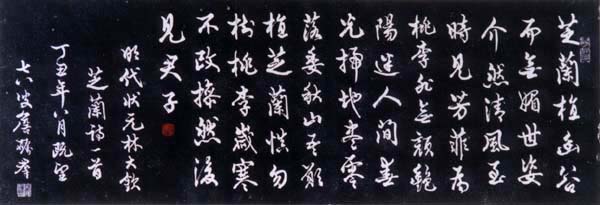 芝蘭植幽谷
而無媚世姿
介然清風至
時見芳菲為
桃李非無顏艷
陽迷人間春
光掃地盡零
落委秋山吾願
植芝蘭慎勿
樹桃李歲寒
不改操然後
見君子
明代狀元林大欽
芝蘭詩一首
丁丑年八月既望